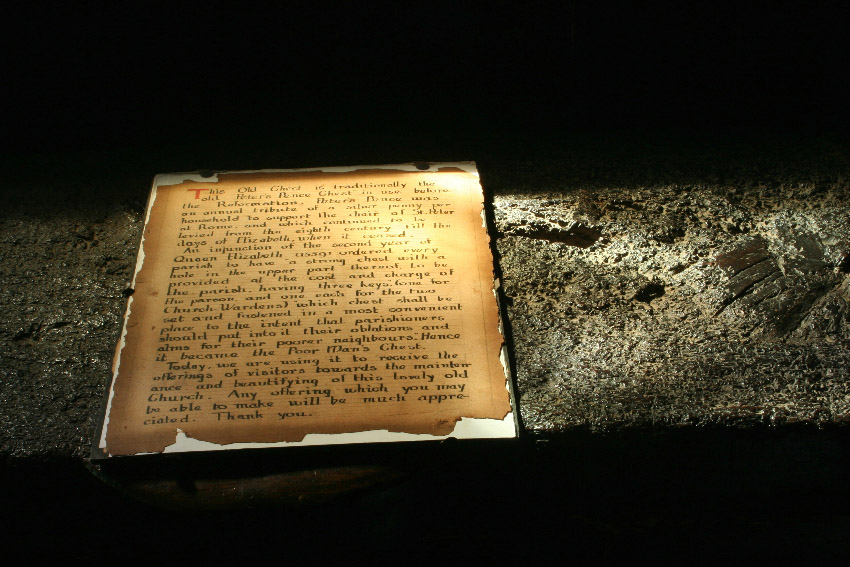 This Old Chest is traditionally the
old Peter's Pence Chest in use before
the Reformation. Peter's Pence was
an annual tribute of a silver penny per
household to support the chair of St. Peter
at Rome, and which continued to be
levied from the eighth century till the
days of Elizabeth, when it ceased.
An injunction of the second year of
Queen Elizabeth, ordered every
parish to have a strong chest with a
hole in the upper part thereof, to be
provided at the cost and charge of
the parish, having three keys, (one for
the parson, and one each for the two
Church Wardens) which chest shall be
set and fastened in a most convenient
place to the intent that parishioners
should put into it their oblations and
alms for their poorer neighbours. Hence
it became the Poor Man's Chest.
Today, we are using it to receive the
offerings of visitors towards the mainten-
ance and beautifying of this lovely old
Church. Any offering which you may
be able to make will be much appre-
ciated. Thank you.